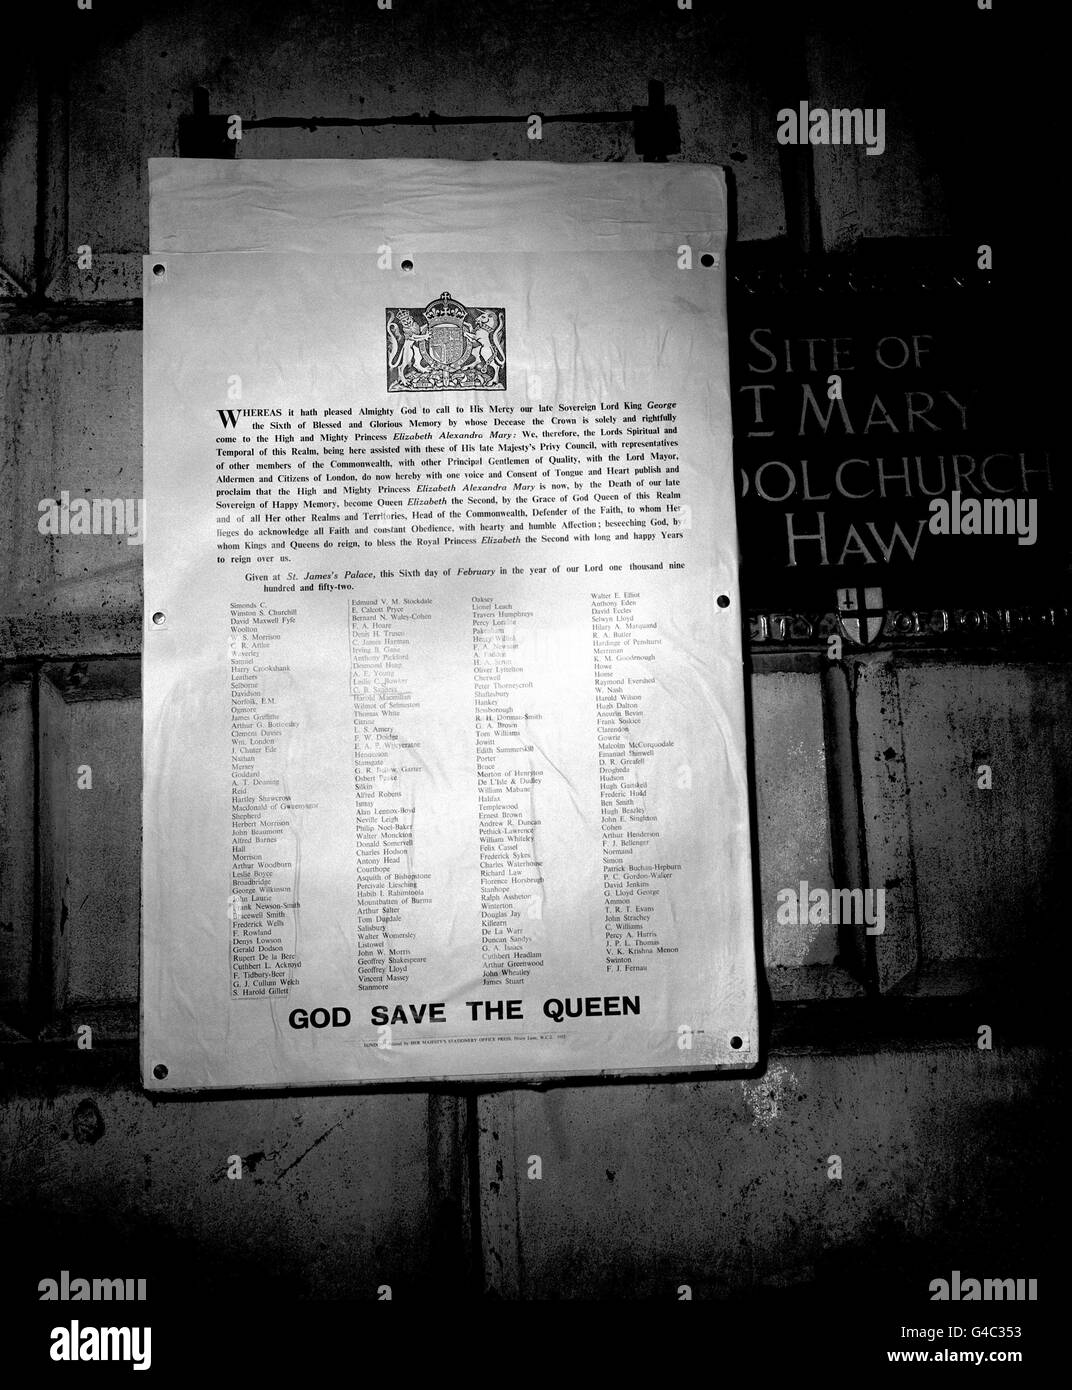 WHEREAS it hath pleased Almighty God to call to His Mercy our late Sovereign Lord King George
the Sixth of Blessed and Glorious Memory by whose Decease the Crown is solely and rightfully
come to the High and Mighty Princess Elizabeth Alexandra Mary: We, therefore, the Lords Spiritual and
Temporal of this Realm, being here assisted with these of His late Majesty's Privy Council, with representatives
of other members of the Commonwealth, with other Principal Gentlemen of Quality, with the Lord Mayor,
Aldermen and Citizens of London, do now hereby with one voice and Consent of Tongue and Heart publish and
proclaim that the High and Mighty Princess Elizabeth Alexandra Mary is now, by the Death of our late
Sovereign of Happy Memory, become Queen Elizabeth the Second, by the Grace of God Queen of this Realm
and of all Her other Realms and Territories, Head of the Commonwealth, Defender of the Faith, to whom Her
lieges do acknowledge all Faith and constant Obedience, with hearty and humble Affection; beseeching God, by
whom Kings and Queens do reign, to bless the Royal Princess Elizabeth the Second with long and happy Years
to reign over us.
Given at St. James's Palace, this Sixth day of February in the year of our Lord one thousand nine
hundred and fifty-two.
Simonds C.
Winston S. Churchill
David Maxwell Fyfe
Woolton
W. S. Morrison
C. R. Attlee
Waverley
Samuel
Harry Crookshank
Leathers
Selborne
Davidson
Norfolk, E.M.
Ogmore
James Griffiths
Arthur G. Bottomley
Clement Davies
Wm. London
J. Chuter Ede
Nathan
Mersey
Goddard
A. T. Denning
Reid
Hartley Shawcross
Macdonald of Gwaenysgor
Shepherd
Herbert Morrison
John Beaumont
Alfred Barnes
Hall
Morrison
Arthur Woodburn
Leslie Boyce
Broadbridge
George Wilkinson
John Laurie
Frank Newson-Smith
Bracewell Smith
Frederick Wells
F. Rowland
Denys Lowson
Gerald Dodson
Rupert De la Bère
Cuthbert L. Ackroyd
F. Tidbury-Beer
G. J. Cullum Welch
S. Harold Gillett
Edmund V. M. Stockdale
E. Calcott Pryce
Bernard N. Waley-Cohen
F. A. Hoare
Denis H. Truscott
C. James Harman
Irving B. Gane
Anthony Pickford
Desmond Heap
A. E. Young
Leslie C. Bowker
Harold Macmillan
Wilmot of Selmeston
Thomas White
Citrine
L. S. Amery
F. W. Doidge
E. A. P. Wijeyeratne
Henderson
Stansgate
G. R. Bellew, Garter
Osbert Peake
Silkin
Alfred Robens
Ismay
Alan Lennox-Boyd
Neville Leigh
Philip Noel-Baker
Walter Monckton
Donald Somervell
Charles Hodson
Antony Head
Courthope
Asquith of Bishopstone
Percivale Liesching
Habib I. Rahimtoola
Mountbatten of Burma
Arthur Salter
Tom Dugdale
Salisbury
Walter Womersley
Listowel
John W. Morris
Geoffrey Shakespeare
Geoffrey Lloyd
Vincent Massey
Stanmore
Oaksey
Lionel Leach
Travers Humphreys
Percy Loraine
Pakenham
Henry Willink
Oliver Lyttelton
Cherwell
Peter Thorneycroft
Shaftesbury
Hankey
Bessborough
R. H. Dorman-Smith
G. A. Brown
Tom Williams
Jowitt
Edith Summerskill
Porter
Bruce
Morton of Henryton
De L'Isle & Dudley
William Mabane
Halifax
Templewood
Ernest Brown
Andrew R. Duncan
Pethick-Lawrence
William Whiteley
Felix Cassel
Frederick Sykes
Charles Waterhouse
Richard Law
Florence Horsbrugh
Stanhope
Ralph Assheton
Winterton
Douglas Jay
Killearn
De La Warr
Duncan Sandys
G. A. Isaacs
Cuthbert Headlam
Arthur Greenwood
John Wheatley
James Stuart
Walter E. Elliot
Anthony Eden
David Eccles
Selwyn Lloyd
Hilary A. Marquand
R. A. Butler
Hardinge of Penshurst
Merriman
K. M. Goodenough
Howe
Home
Raymond Evershed
W. Nash
Harold Wilson
Hugh Dalton
Aneurin Bevan
Frank Soskice
Clarendon
Gowrie
Malcolm McCorquodale
Emanuel Shinwell
D. R. Grenfell
Drogheda
Hudson
Hugh Gaitskell
Frederic Hudd
Ben Smith
Hugh Beazley
John E. Singleton
Cohen
Arthur Henderson
F. J. Bellenger
Normand
Simon
Patrick Buchan-Hepburn
P. C. Gordon-Walker
David Jenkins
G. Lloyd George
Ammon
T. R. T. Evans
John Strachey
C. Williams
Percy A. Harris
J. P. L. Thomas
V. K. Krishna Menon
Swinton
F. J. Fernau
GOD SAVE THE QUEEN
HER MAJESTY'S STATIONERY OFFICE PRESS, Drury Lane, W.C.2. 1952
SITE OF
ST MARY
OOLCHURCH
HAW
CITY OF LONDON
alamy
a
alamy
G4C353
www.alamy.com